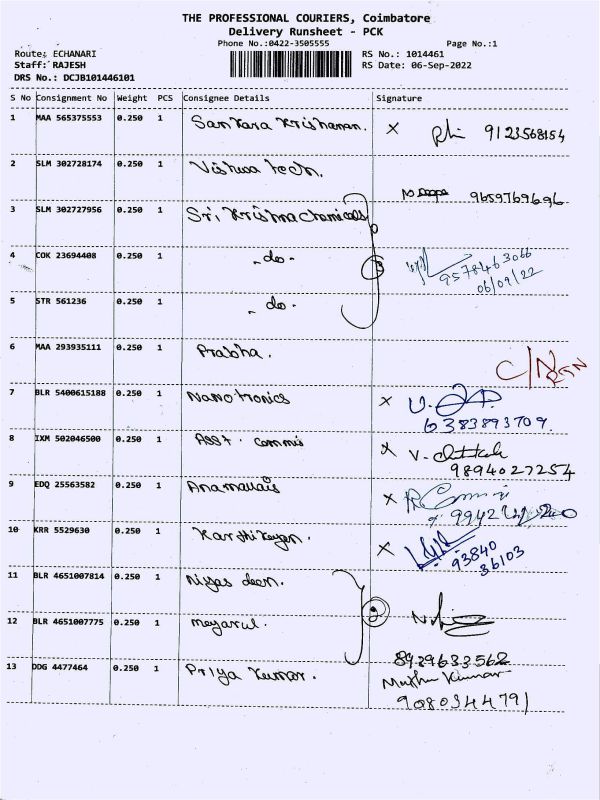 THE PROFESSIONAL COURIERS, Coimbatore
Delivery Runsheet - PCK
Phone No.:0422-3505555 Page No.:1
Route: ECHANARI RS No.: 1014461
Staff: RAJESH RS Date: 06-Sep-2022
DRS No.: DCJB101446101
S No Consignment No Weight PCS Consignee Details Signature
1 MAA 565375553 0.250 1 Sankara Krishanan. X 9123568154
2 SLM 302728174 0.250 1 Vishwa tech.
9659769696
3 SLM 302727956 0.250 1 Sri Krishna chemicals
4 COK 23694408 0.250 1 - do - 3 9578463066
06/09/22
5 STR 561236 0.250 1 - do -
6 MAA 293935111 0.250 1 Prabha.
C/N RSN
7 BLR 5400615188 0.250 1 Nanotronics X
6383893709.
8 IXM 502046500 0.250 1 Asst. commis X V.
9894027254
9 EDQ 25563582 0.250 1 Anamallais X
10 KRR 5529630 0.250 1 Karthikeyan. X
93840
36103
11 BLR 4651007814 0.250 1 Niyas deen.
12 BLR 4651007775 0.250 1 Meyarul. 2
8939633562
13 DDG 4477464 0.250 1 Priya Kumar. Muthu Kumar
9080344791